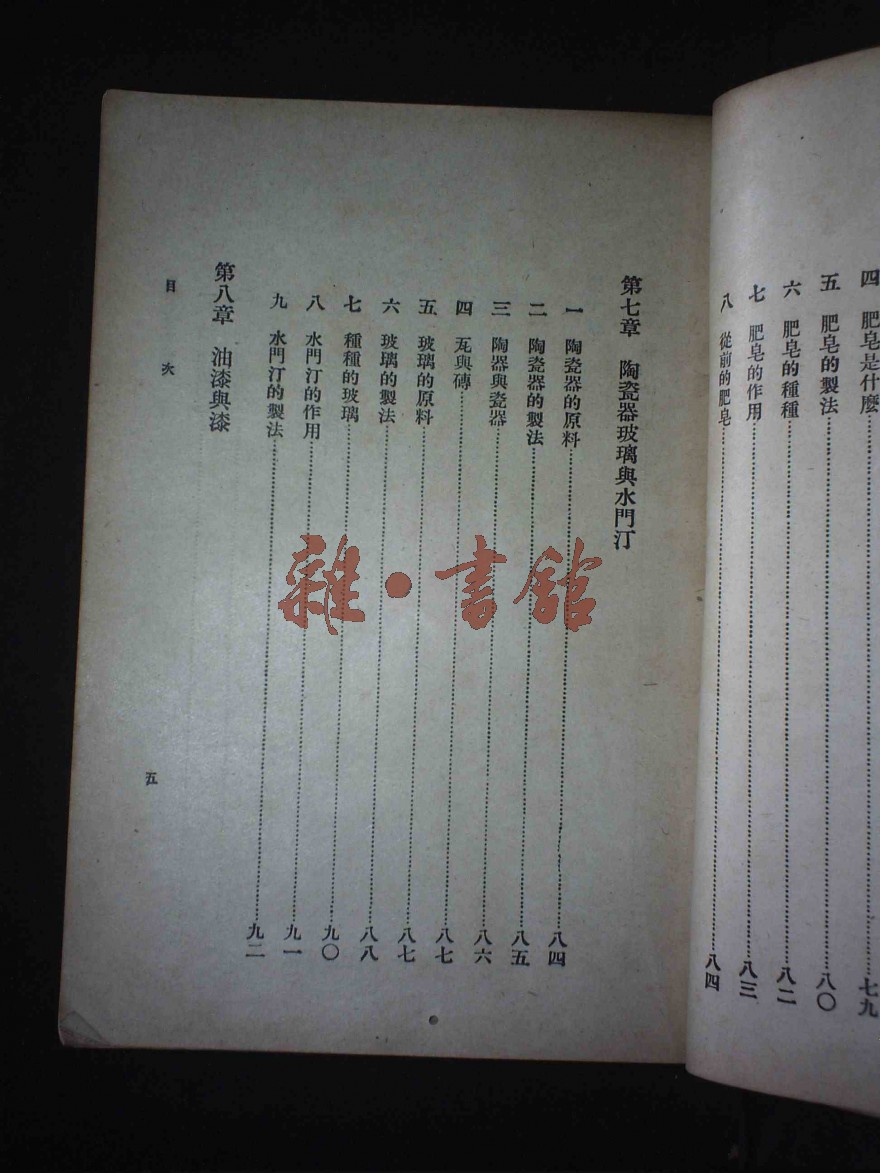 四　肥皂是什麼……七九
五　肥皂的製法……八〇
六　肥皂的種種……八二
七　肥皂的作用……八三
八　從前的肥皂……八四
第七章　陶瓷器玻璃與水門汀
一　陶瓷器的原料……八四
二　陶瓷器的製法……八五
三　陶器與瓷器……八六
四　瓦與磚……八七
五　玻璃的原料……八七
六　玻璃的製法……八八
七　種種的玻璃……九〇
八　水門汀的作用……九一
九　水門汀的製法……九二
第八章　油漆與漆
目次
五
雜·書館